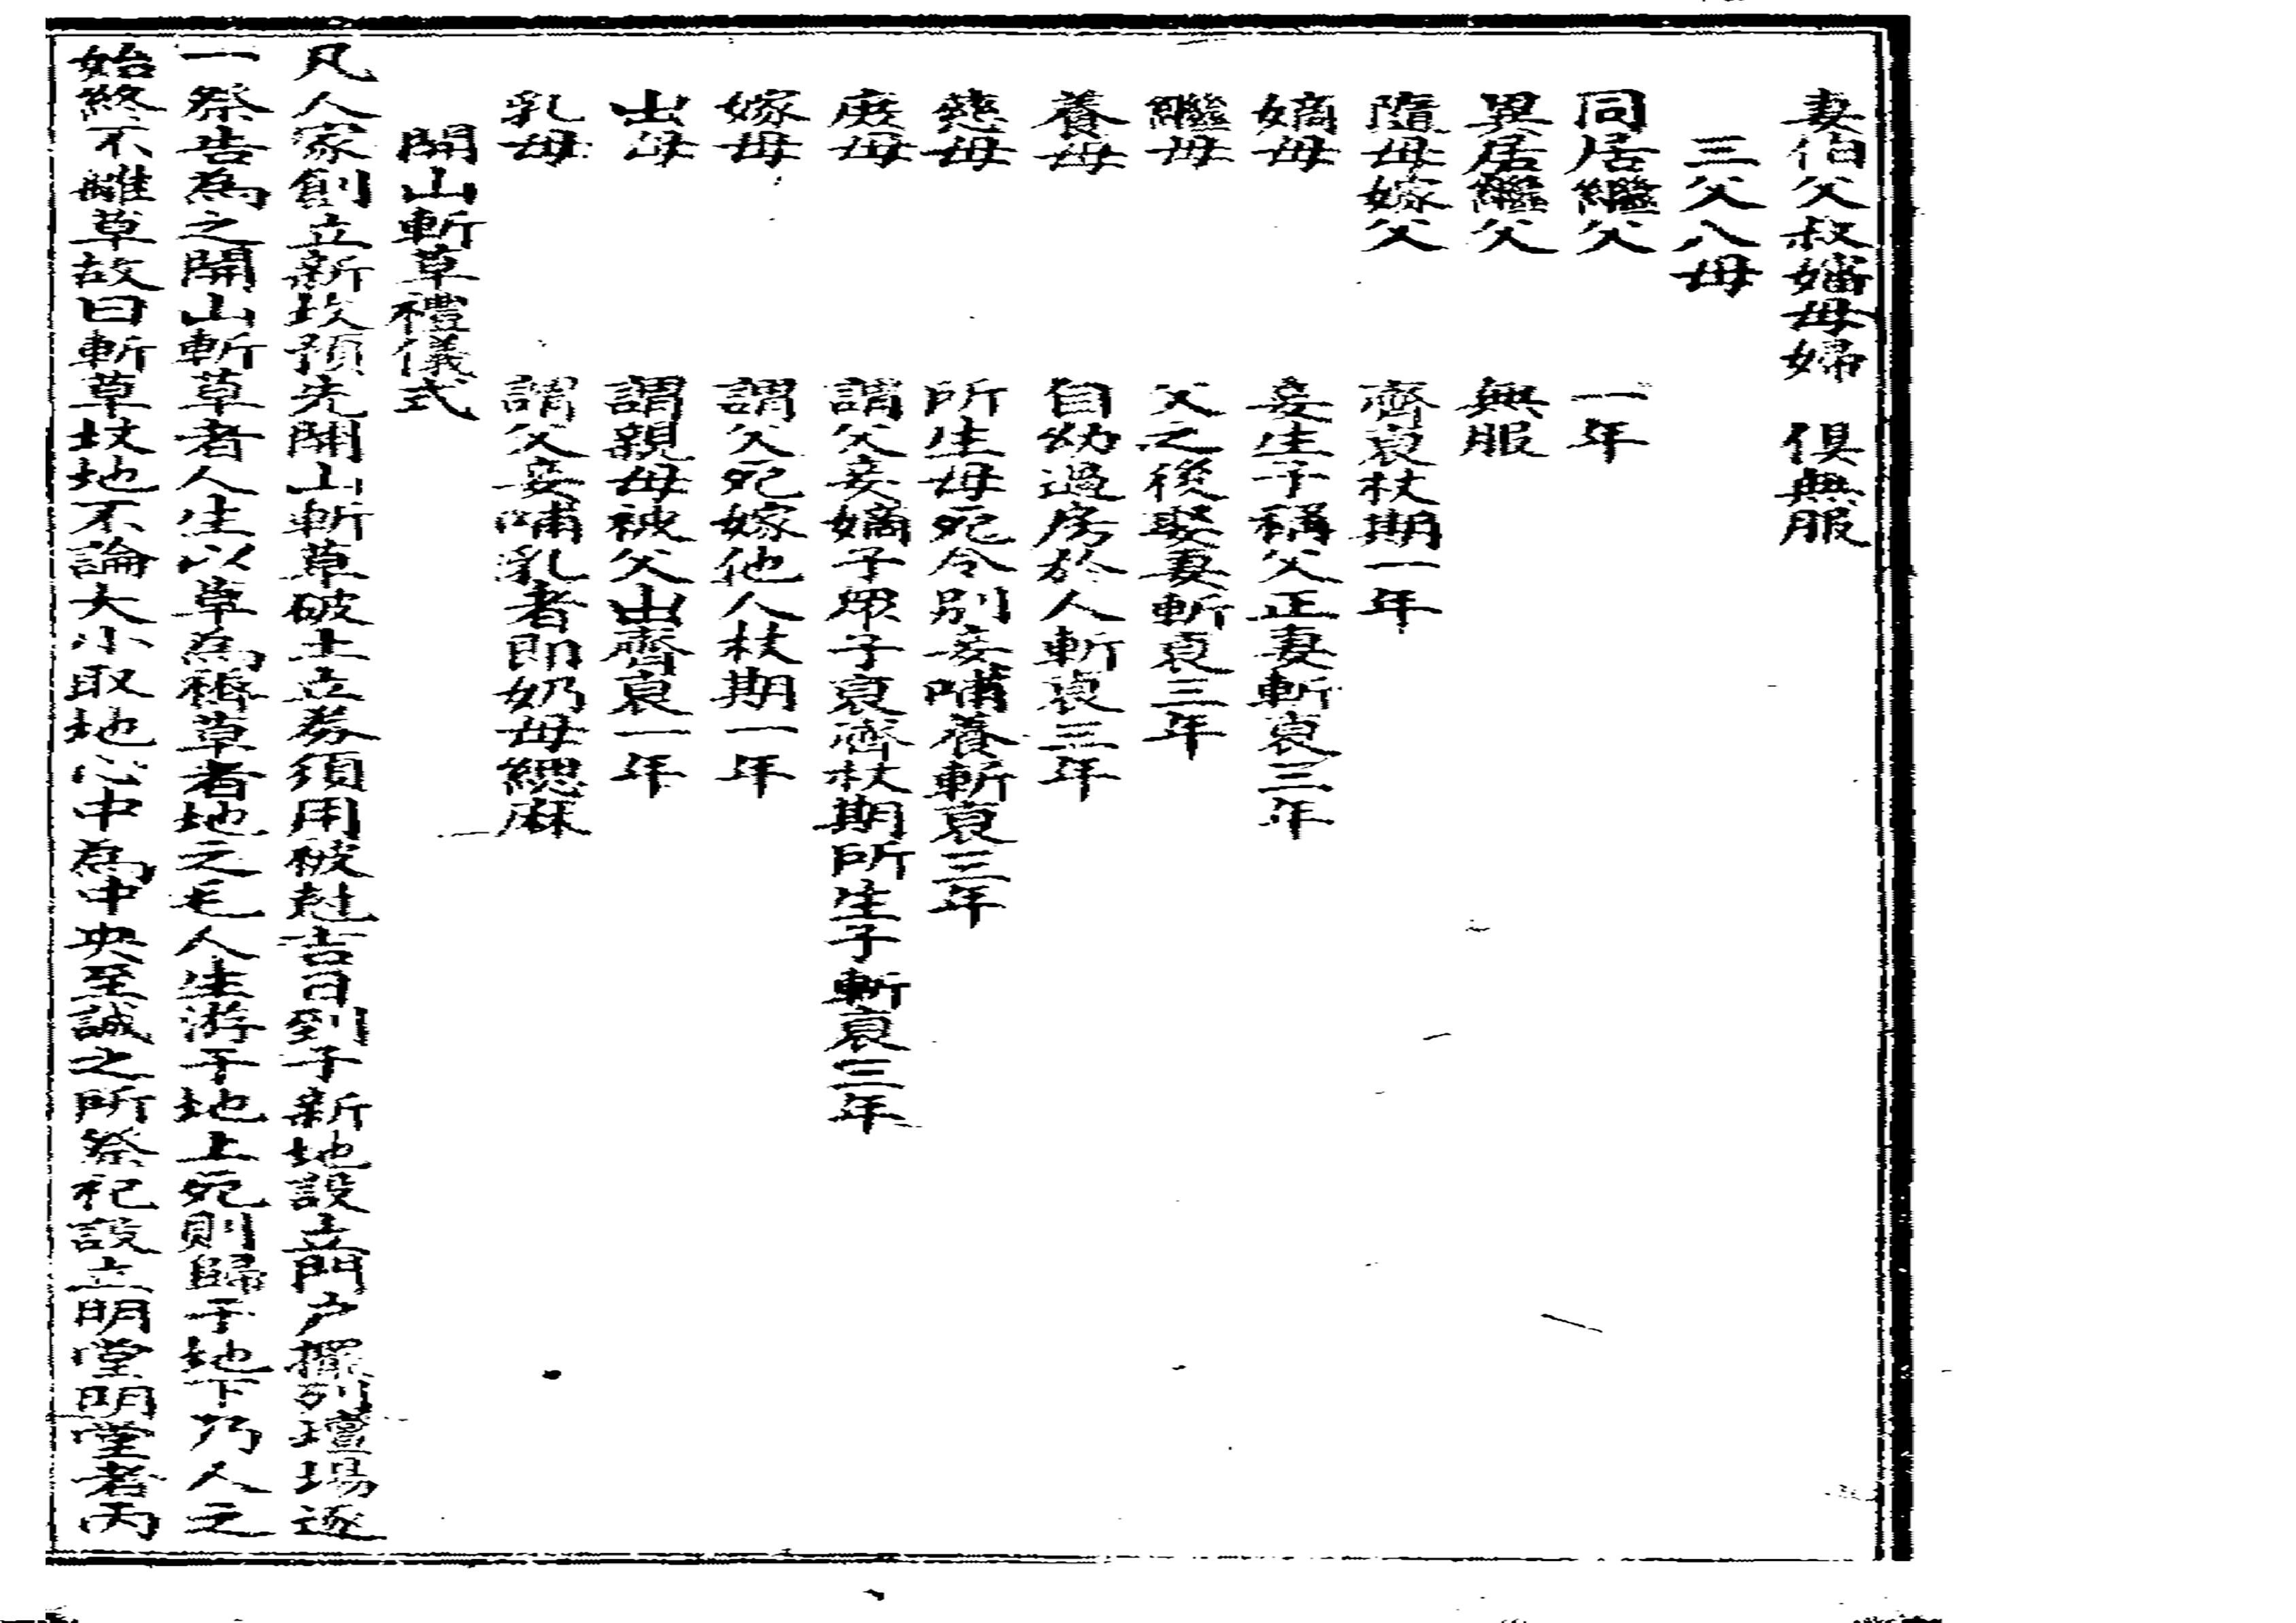 妻伯父叔嬸母婦　俱無服
三父八母
同居繼父　一年
異居繼父　無服
隨母嫁父　齊衰杖期一年
嫡母　妾生子稱父正妻斬衰三年
繼母　父之後娶妻斬衰三年
養母　自幼過房於人斬衰三年
慈母　所生母死令別妾哺養斬衰三年
庶母　謂父妾嫡子眾子衰齊杖期所生子斬衰三年
嫁母　謂父死嫁他人杖期一年
出母　謂親母被父出齊衰一年
乳母　謂父妾哺乳者即奶母緦麻
開山斬草禮儀式
凡人家創立新坟預先開山斬草破土立券須用被尅吉日到于新地設立門户擺列壇場逐
一祭告為之開山斬草者人生以草為褥草者地之毛人生游于地上死則歸于地下乃人之
始終不離草故曰斬草坟地不論大小取地心中為中央至誠之所祭祀設立明堂明堂者丙